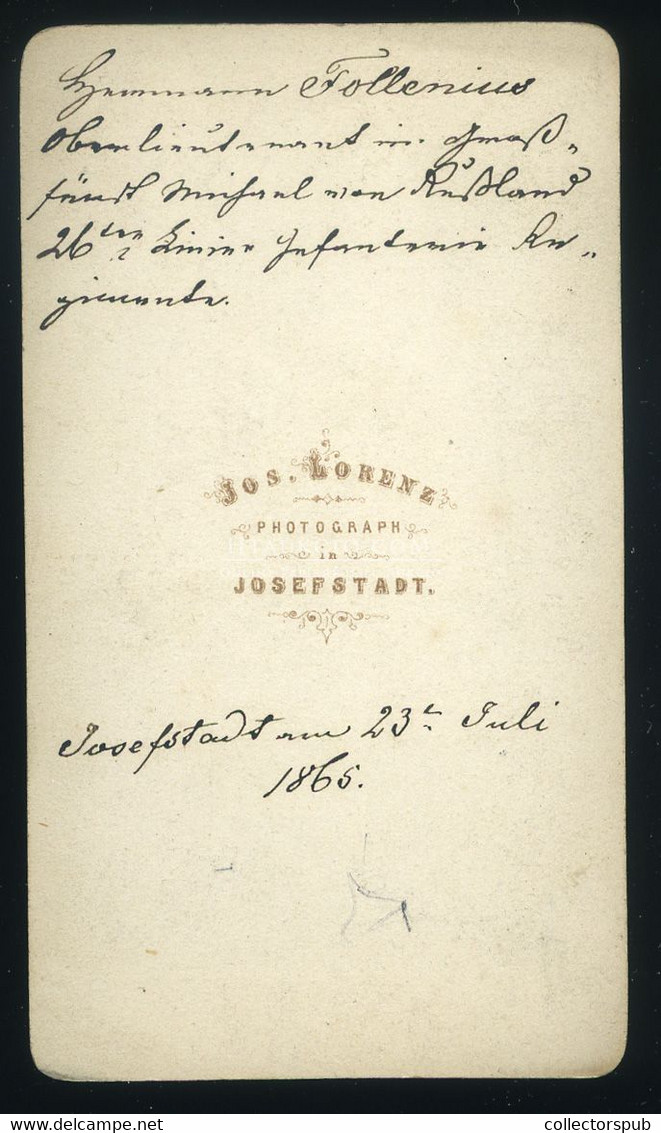 Hermann Follenius
Oberlieutenant im Groß-
fürst Michael von Rußland
26ten Linien Infanterie Re-
gimente.
JOS. LORENZ
PHOTOGRAPH
in
JOSEFSTADT.
Josefstadt am 23t Juli
1865.
www.delcampe.net
collectorspub